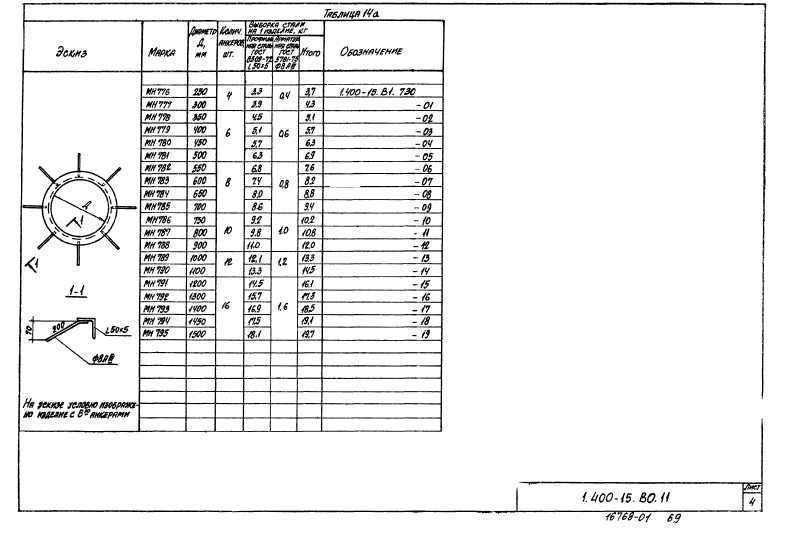 Таблица 14а
Эскиз | Марка | Диаметр Д, мм | Колич. анкеров шт. | Выборка стали на 1 изделие, кг | Обозначение
Профильная сталь ГОСТ 8509-72 L50×5 | Арматурная сталь ГОСТ 5781-75 Ф8АIII | Итого
МН 776 | 250 | 4 | 3.3 | 0,4 | 3,7 | 1.400-15.В1.730
МН 777 | 300 | 3.9 | 4.3 | -01
МН 778 | 350 | 6 | 4.5 | 0,6 | 5.1 | -02
МН 779 | 400 | 5,1 | 5.7 | -03
МН 780 | 450 | 5,7 | 6.3 | -04
МН 781 | 500 | 6.3 | 6.9 | -05
МН 782 | 550 | 8 | 6.8 | 0,8 | 7.6 | -06
МН 783 | 600 | 7.4 | 8.2 | -07
МН 784 | 650 | 8,0 | 8.8 | -08
МН 785 | 700 | 8.6 | 9.4 | -09
МН 786 | 750 | 10 | 9.2 | 1.0 | 10.2 | -10
МН 787 | 800 | 9.8 | 10.8 | -11
МН 788 | 900 | 11.0 | 12.0 | -12
МН 789 | 1000 | 12 | 12,1 | 1,2 | 13.3 | -13
МН 790 | 1100 | 13.3 | 14.5 | -14
МН 791 | 1200 | 16 | 14.5 | 1,6 | 16.1 | -15
МН 792 | 1300 | 15.7 | 17.3 | -16
МН 793 | 1400 | 16.9 | 18.5 | -17
МН 794 | 1450 | 17.5 | 19.1 | -18
МН 795 | 1500 | 18.1 | 19.7 | -19
Д
1
1
1-1
70
200
L50×5
Ф8АIII
На эскизе условно изображе-
но изделие с 8ю анкерами
1.400-15.В0.11
Лист
4
16768-01 69